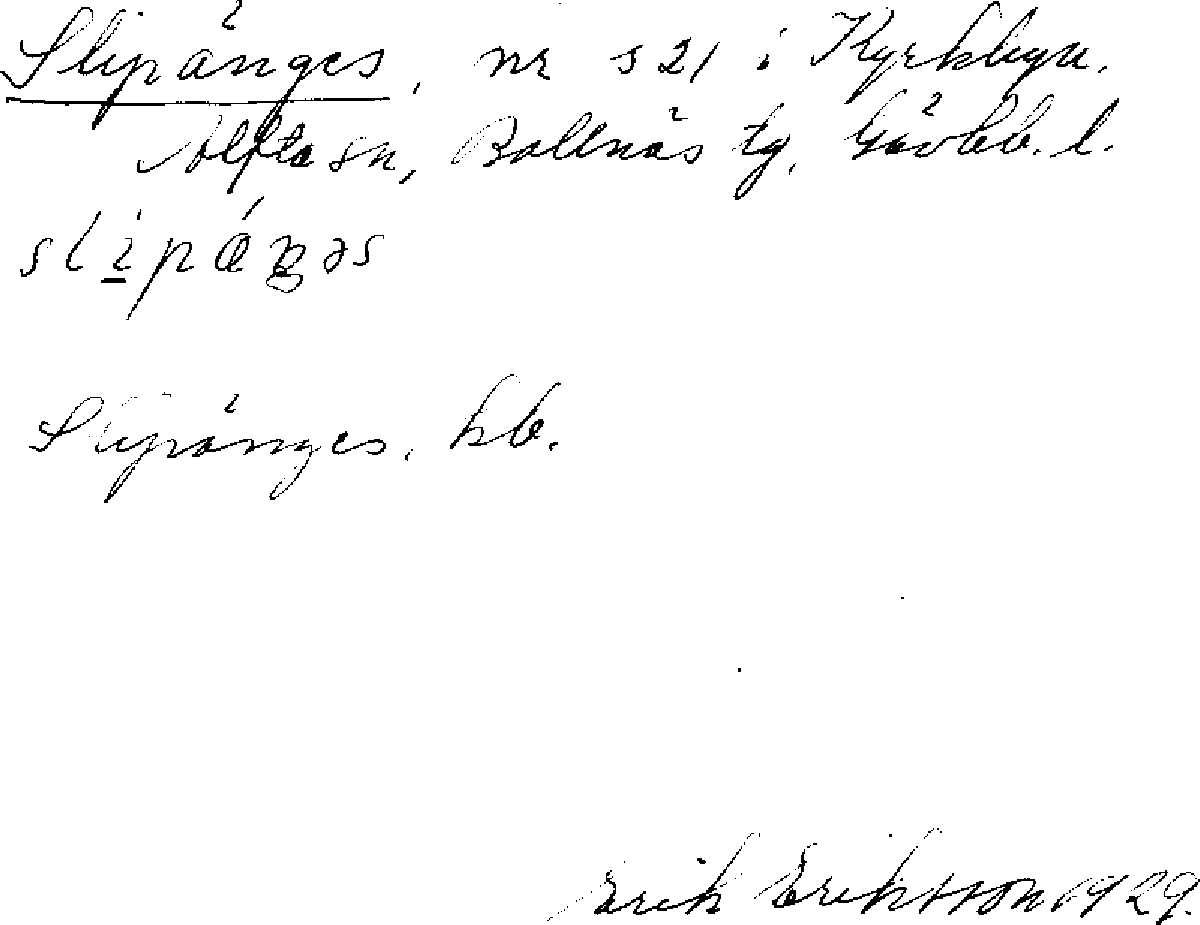 Slipänges, nr s 21 i Kyrkbyn.
Alfta sn, Bollnäs tg, Gävleb. l.
Slipänges, kb.
Erik Eriksson 1929.